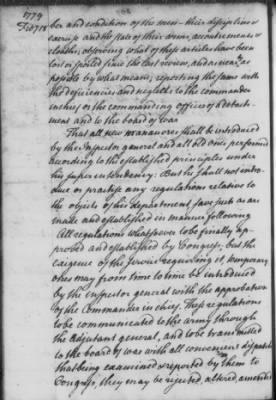 1779
Feb 18
ber and condition of the men their discipline
exercise and the state of their arms, accoutrements &
cloaths, observing what of these articles have been
lost or spoiled since the last review, and as near as
possible by what means; reporting the same with
the deficiencies and neglects to the commander
in chief or the commanding officer of a detach-
ment and to the board of war
That all new manœuvres shall be introduced
by the Inspector general and all old ones performed
according to the established principles under
his superintendency. But he shall not intro-
duce or practise any regulations relative to
the objects of his department save such as are
made and established in manner following
All regulations whatsoever to be finally ap-
proved and established by Congress, but the
exigence of the service requiring it, temporary
ones may from time to time be introduced
by the inspector general with the approbation
of the commander in chief. These regulations
to be communicated to the army through
the adjutant general, and to be transmitted
to the board of war with all convenient dispatch
that being examined & reported by them to
Congress, they may be rejected, altered, amended